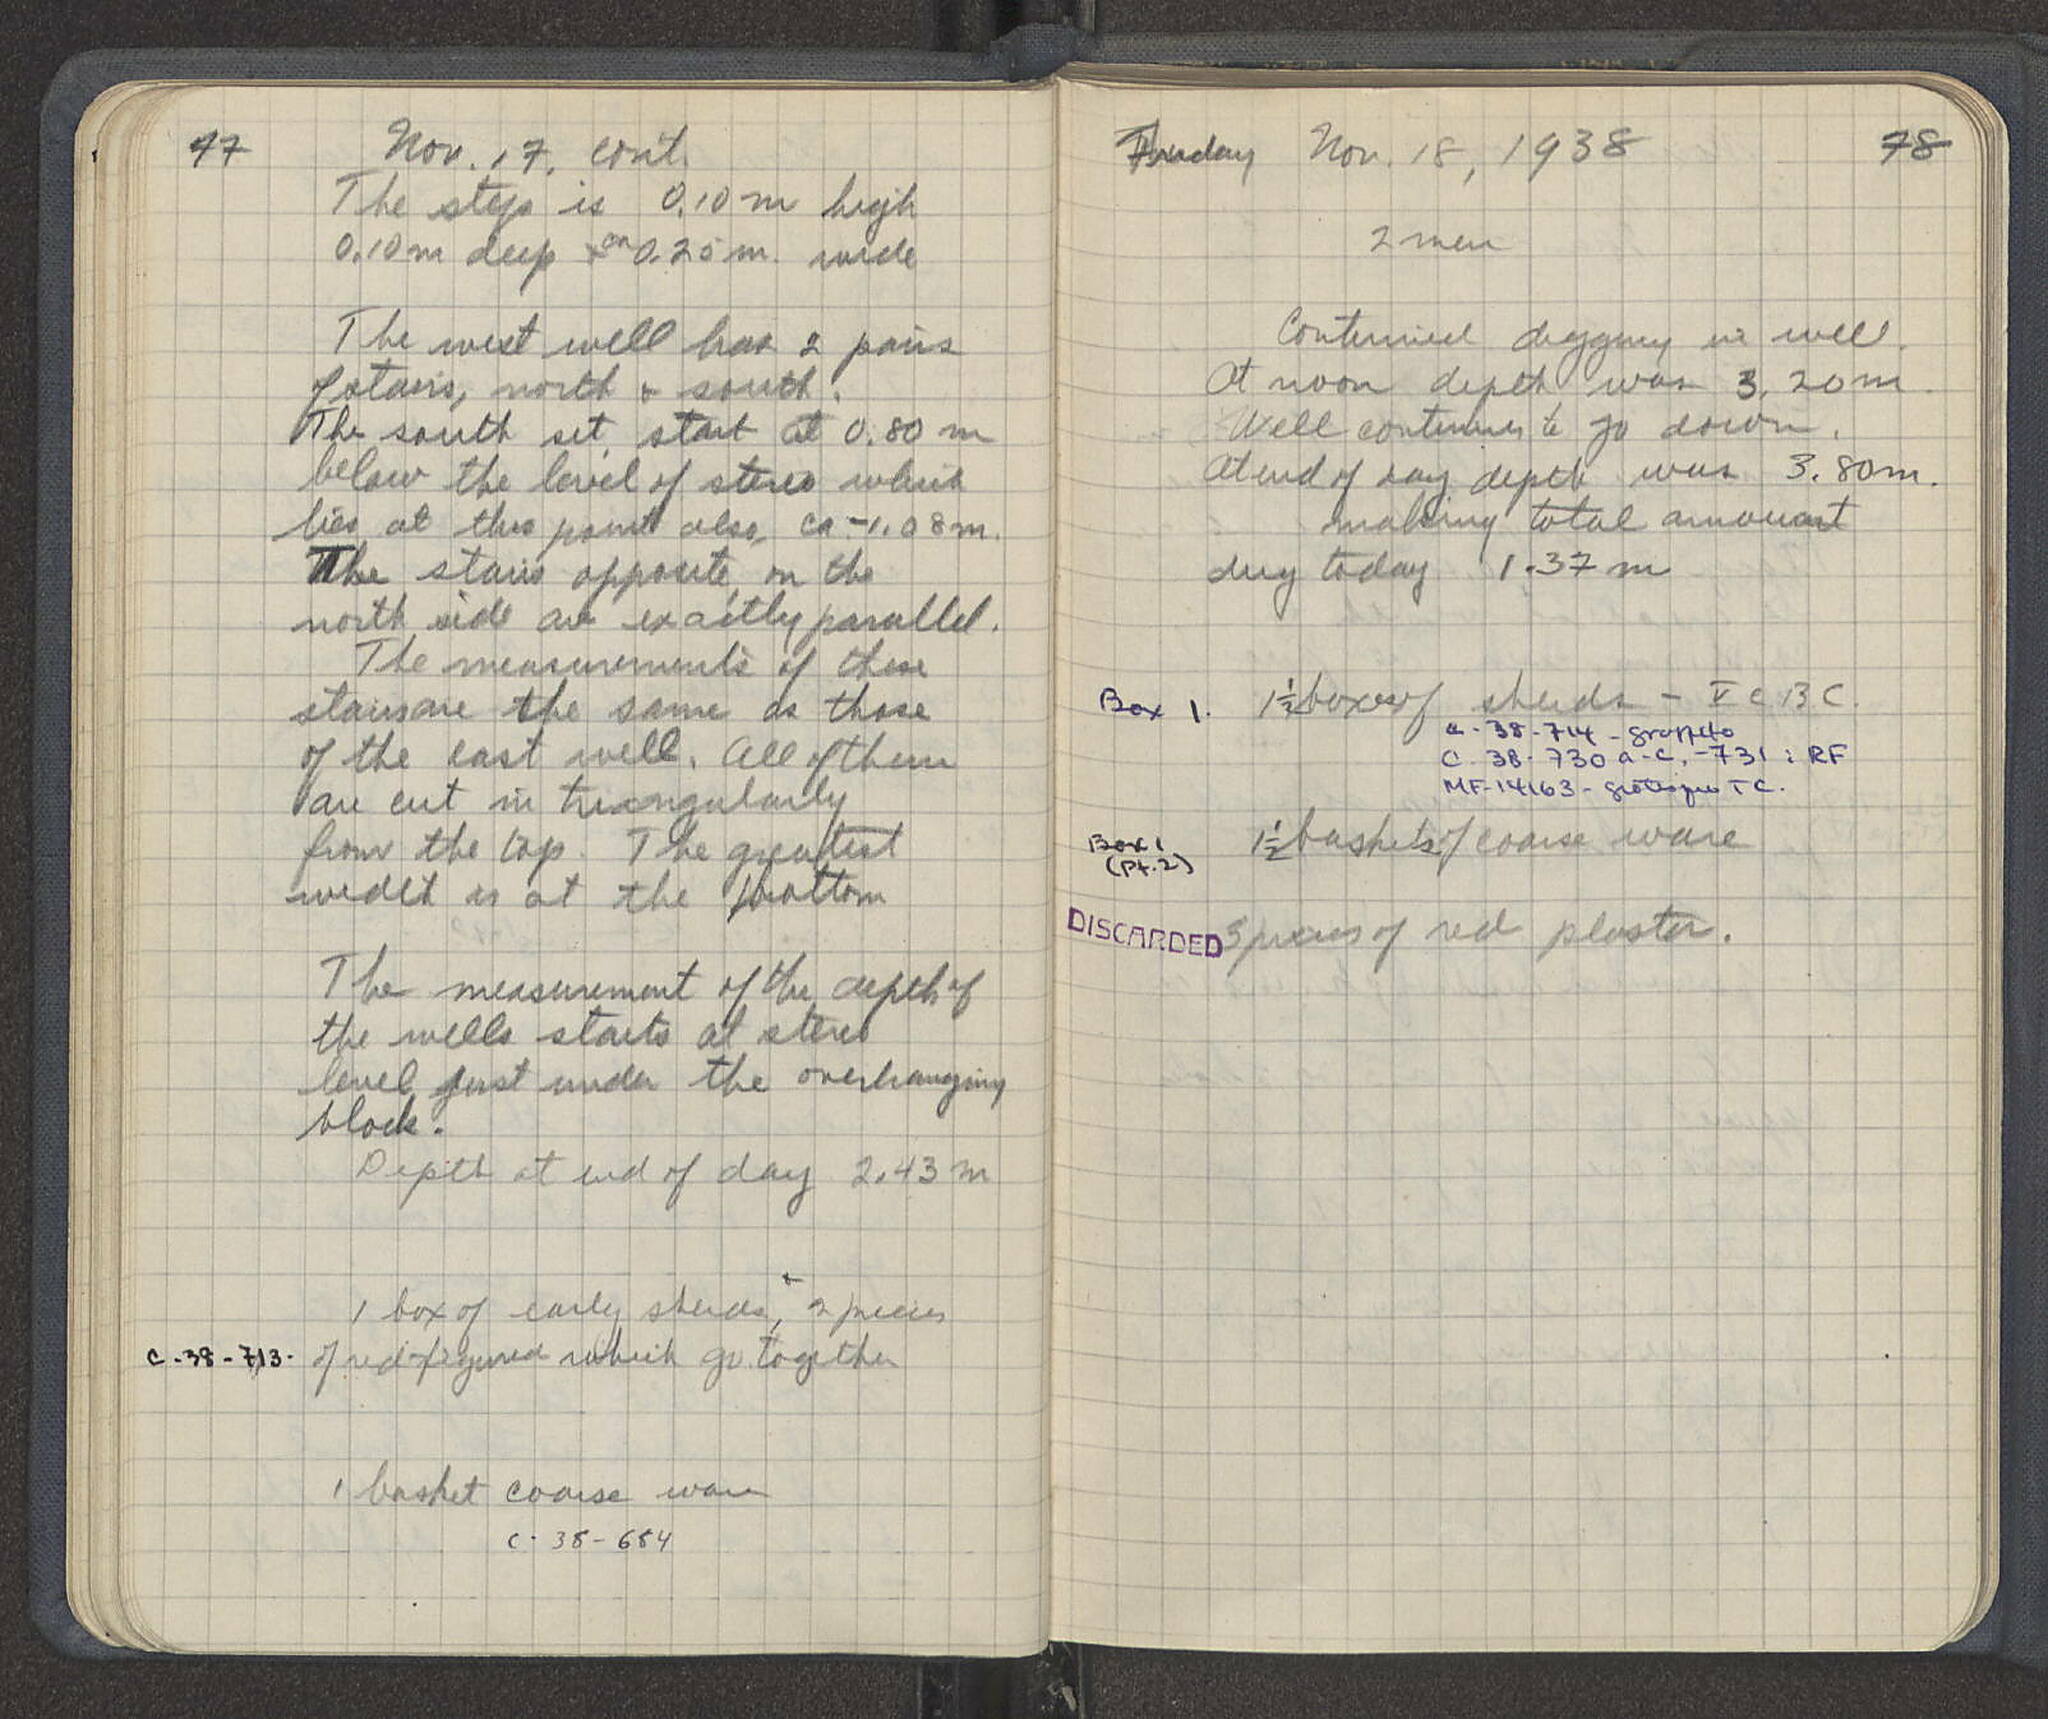 77 Nov. 17, cont.
The steps is 0.10 m high
0.10 m deep x ca 0.25 m. wide
The west well has 2 pairs
of stairs, north & south.
The south set, start at 0.80 m
below the level of stereo which
lies at this point also, ca -1.08 m.
The stairs opposite, on the
north side are exactly parallel.
The measurements of these
stairs are the same as those
of the east well. All of them
are cut in triangularly
from the top. The greatest
width is at the bottom
The measurement of the depth of
the wells starts at stereo
level just under the overhanging
block.
Depth at end of day 2.43 m
1 box of early sherds, + 2 pieces
C-38-713. of red-figured which go together
1 basket coarse ware
C-38-684
Friday Nov. 18, 1938 78
2 men
Continued digging in well.
At noon depth was 3.20 m.
Well continues to go down.
At end of day depth was 3.80 m.
making total amount
dug today 1.37 m
Box 1. 1½ boxes of sherds - V c BC.
C-38-714 - graffito
C-38-730 a-c, -731 : RF
MF-14163 - grotesque TC.
Box 1 1½ baskets of coarse ware
(Pt.2)
DISCARDED 3 pieces of red plaster.